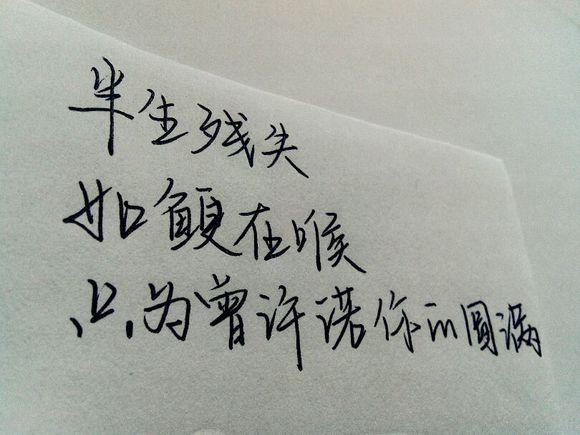 半生残失
如鲠在喉
只为曾许诺你的圆满